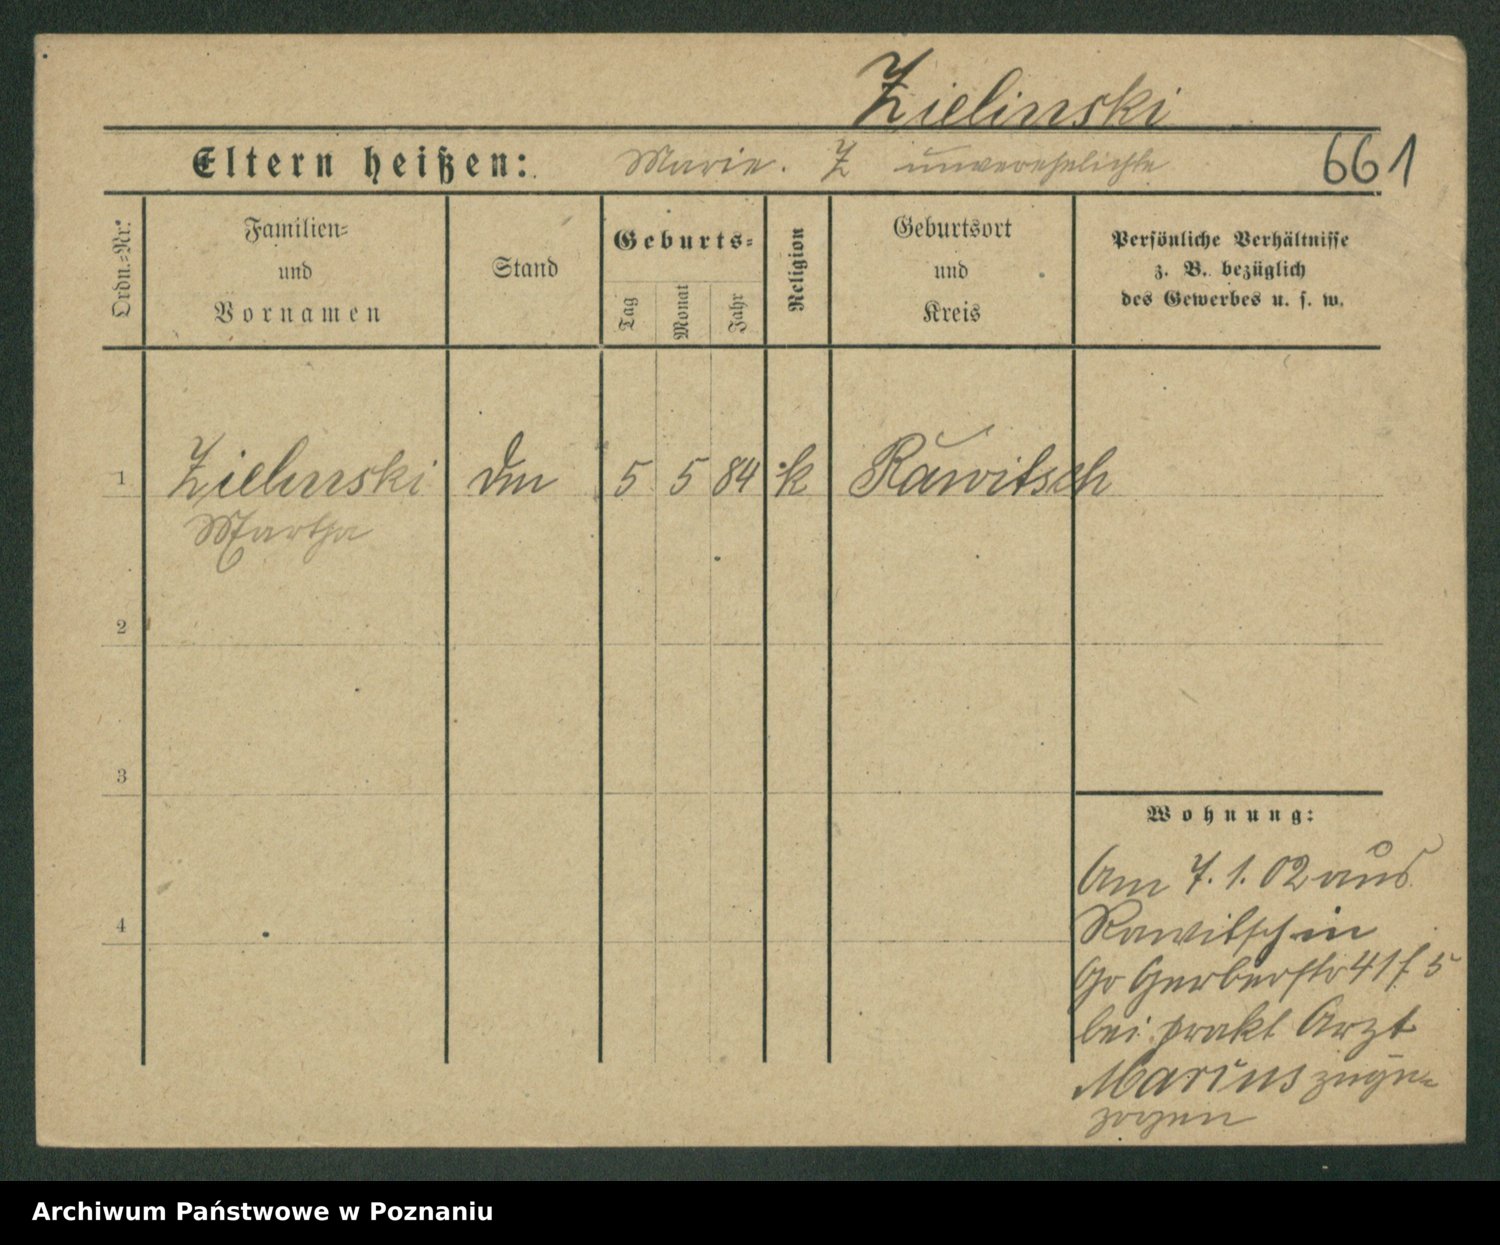 Zielinski
Eltern heißen: Marie. Z unverehelichte
661
Ordn.-Nr.
Familien-
und
Vornamen
Stand
Geburts-
Tag
Monat
Jahr
Religion
Geburtsort
und
Kreis
Persönliche Verhältnisse
z. B. bezüglich
des Gewerbes u. s. w.
1 Zielinski 5 5 84 k Rawitsch
Martha
2
3
Wohnung:
4
Am 7.1.02 aus
Rawitsch in
Gr Gerberstr 41 5
bei prakt Arzt
Marius zuge-
zogen
Archiwum Państwowe w Poznaniu